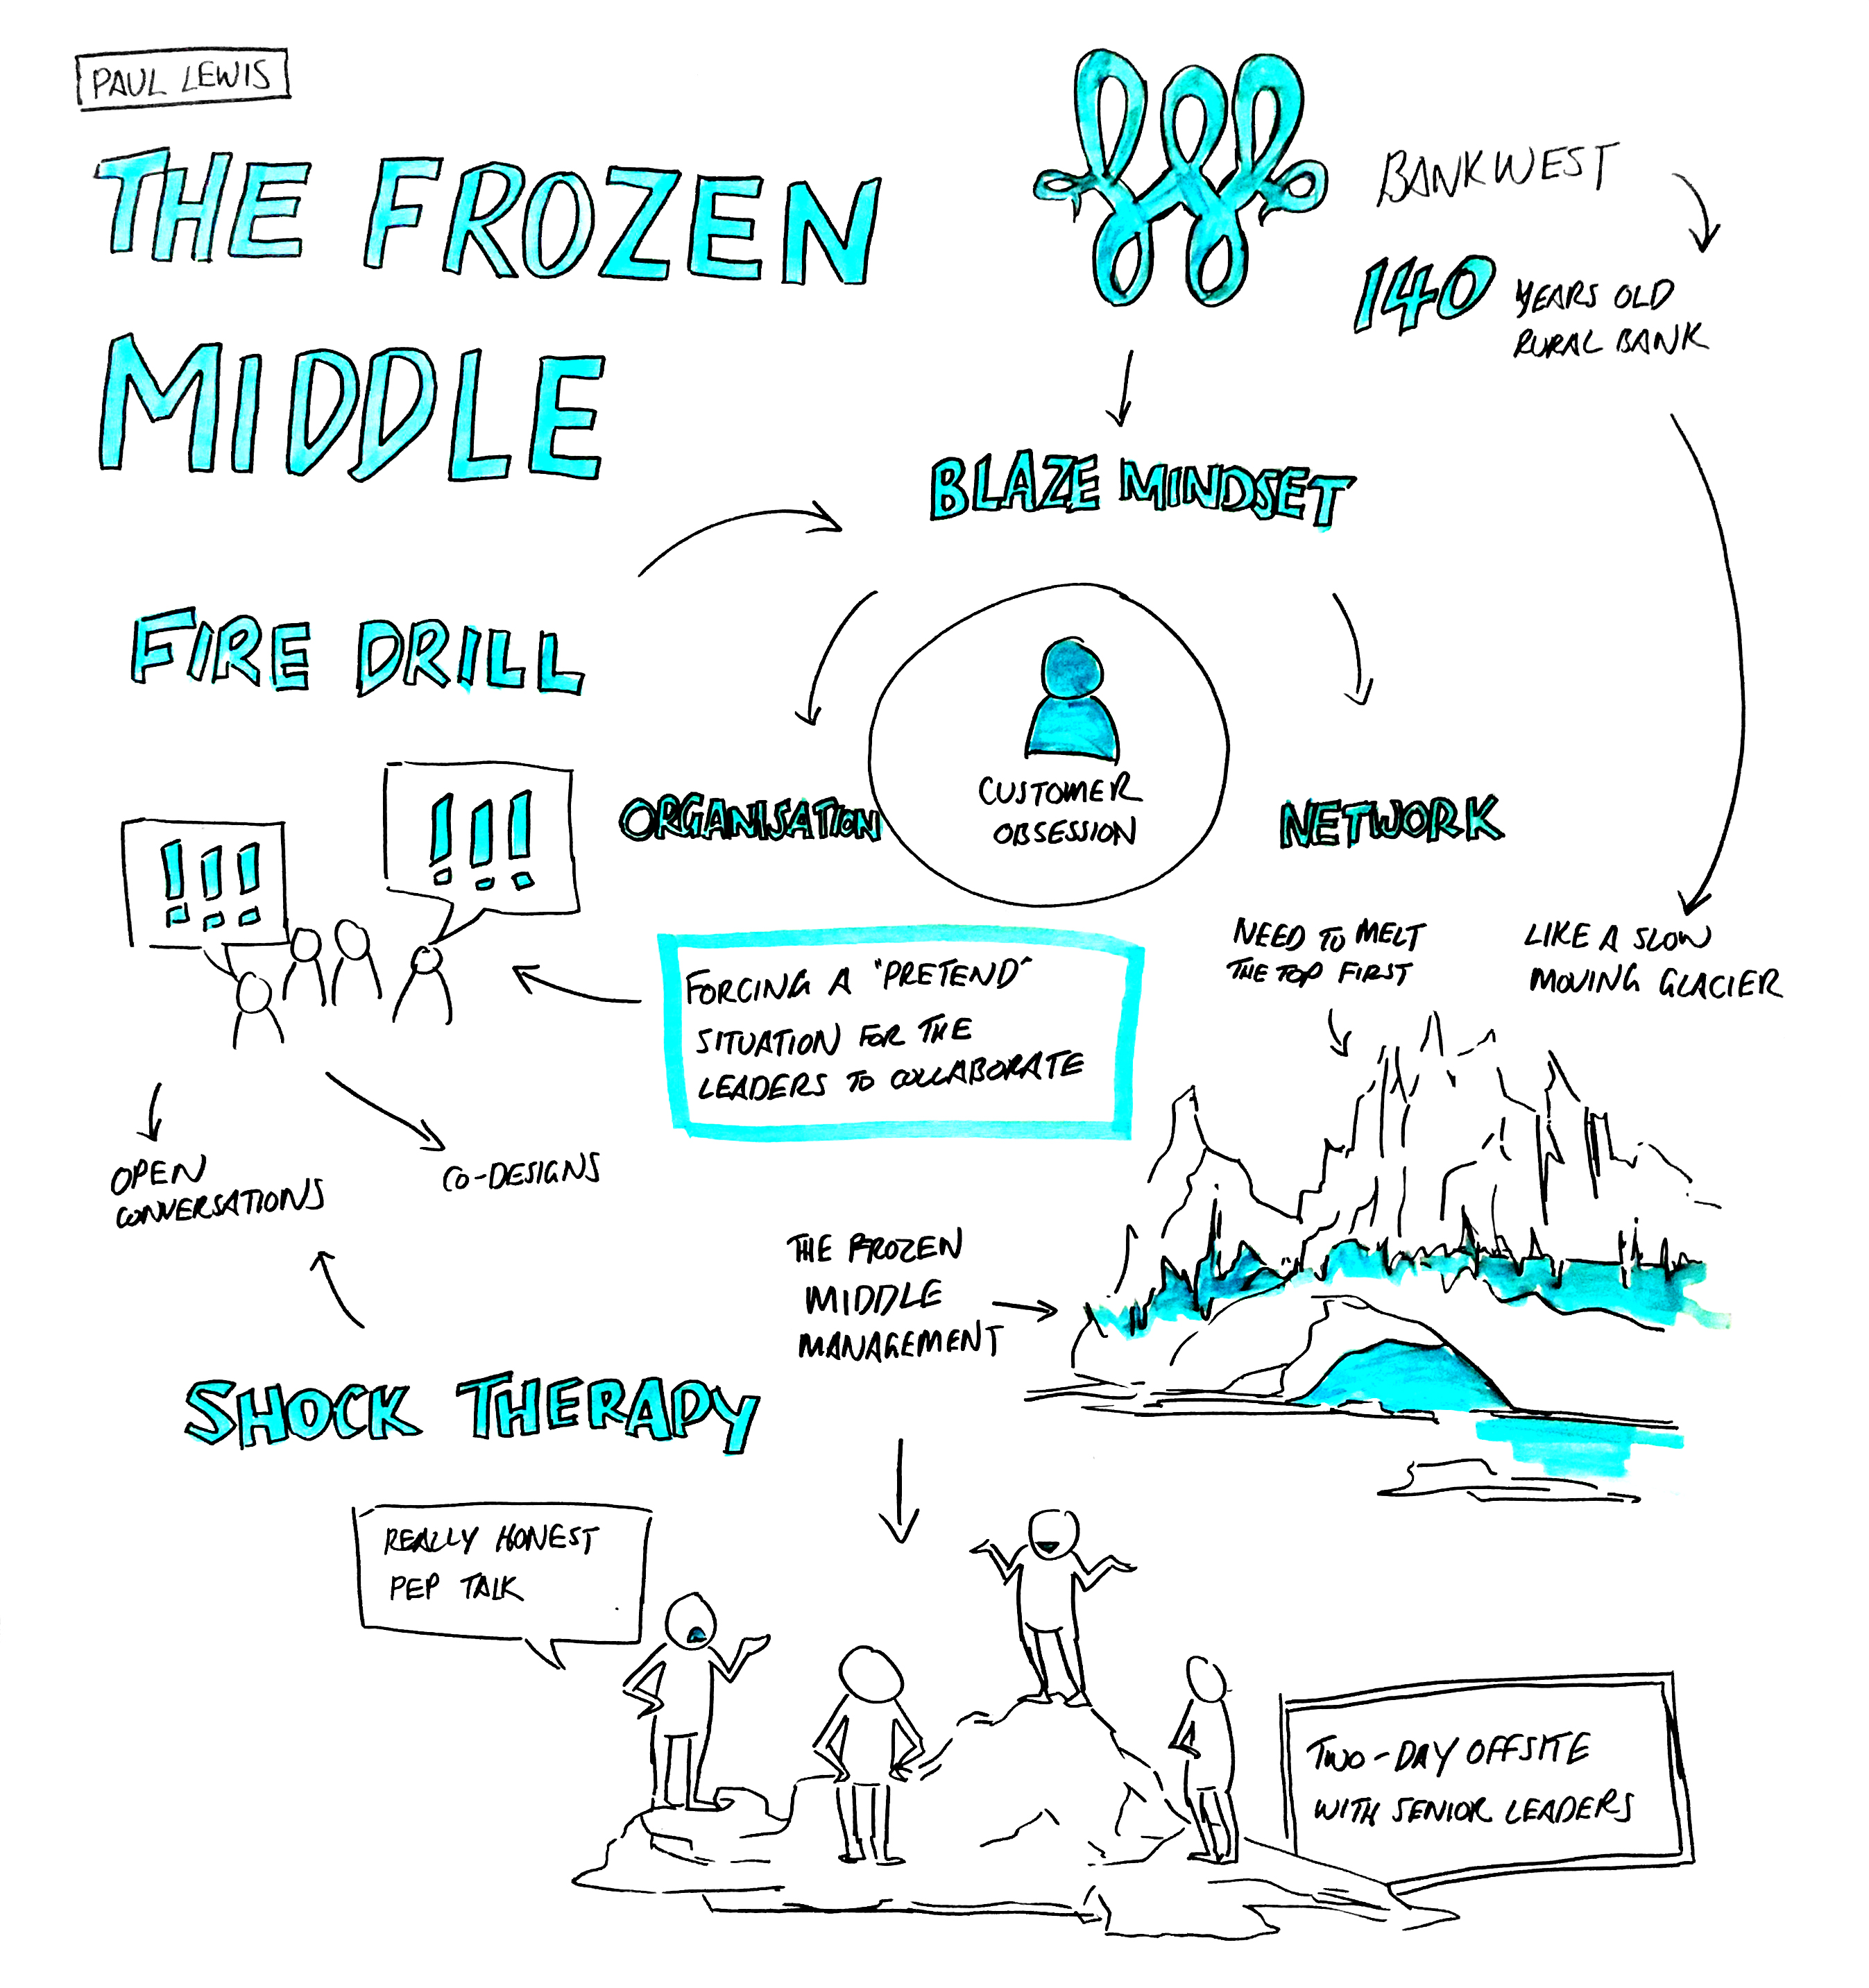 PAUL LEWIS
THE FROZEN
MIDDLE
BANKWEST
140 YEARS OLD
RURAL BANK
BLAZE MINDSET
FIRE DRILL
!!!
!!!
ORGANISATION
CUSTOMER
OBSESSION
NETWORK
FORCING A "PRETEND"
SITUATION FOR THE
LEADERS TO COLLABORATE
NEED TO MELT
THE TOP FIRST
LIKE A SLOW
MOVING GLACIER
OPEN
CONVERSATIONS
CO-DESIGNS
THE FROZEN
MIDDLE
MANAGEMENT
SHOCK THERAPY
REALLY HONEST
PEP TALK
TWO-DAY OFFSITE
WITH SENIOR LEADERS